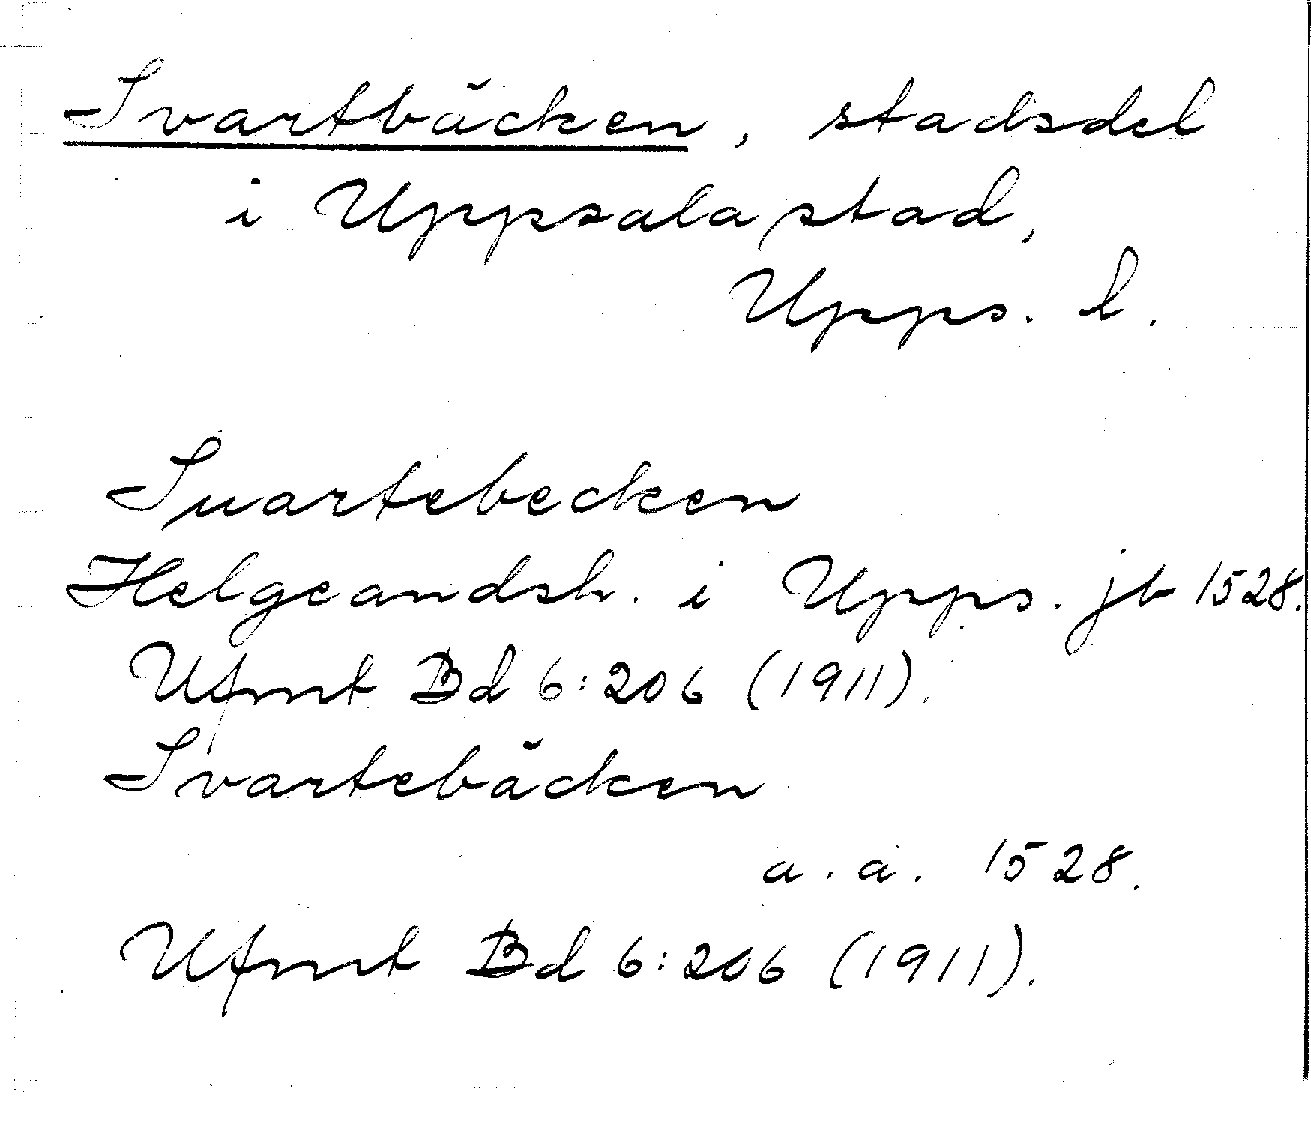 Svartbäcken, stadsdel
i Uppsala stad,
Upps. l.
Suartebecken
Helgeandsh. i Upps. jb 1528.
Ufmt Bd 6:206 (1911).
Svartebäcken
a. a. 1528.
Ufmt Bd 6:206 (1911).